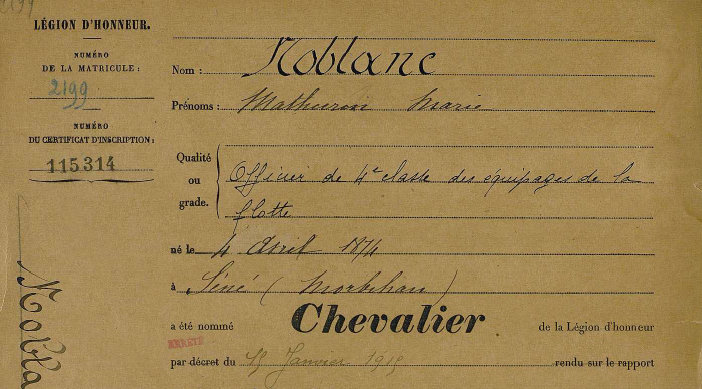 2199
LÉGION D'HONNEUR.
NUMÉRO
DE LA MATRICULE :
2199
NUMÉRO
DU CERTIFICAT D'INSCRIPTION :
115314
Nom : Noblanc
Prénoms : Mathurin Marie
Qualité
ou
grade.
Officier de 4e classe des équipages de la
flotte
né le 4 Avril 1874
à Séné (Morbihan)
a été nommé Chevalier de la Légion d'honneur
ARRÊTÉ
par décret du 15 Janvier 1915 rendu sur le rapport